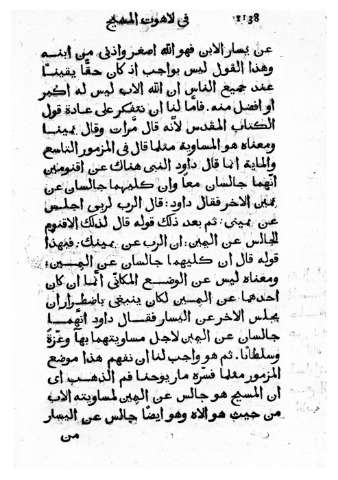 في لاهوت المسيح 1138
عن يسار الابن فهو الله اصغر واذنى من ابنه
وهذا القول ليس بواجب اذ كان حقًّا يقينًا
عند جميع الناس ان الله الاب ليس له اكبر
او افضل منه. فاما لنا ان نتفكر على عادة قول
الكتاب المقدس لانّه قال مرّات وقال يمينا
ومعناه هو المساوية مثلما قال في المزمور التاسع
والماية انما قال داود النبى هناك عن اقنومين
انّهما جالسان معًا وان كليهما جالسان عن
يمين الاخر فقال داود: قال الرب لربى اجلس
عن يمينى: ثم بعد ذلك قوله قال لذلك الاقنوم
الجالس عن اليمين: ان الرب عن يمينك. فبهذا
قوله قال ان كليهما جالسان عن اليمين:
ومعناه ليس عن الوضع المكانى انما ان كان
احدهما عن اليمين لكان ينبغى باضطرار ان
يجلس الاخر عن اليسار فقال داود انّهما
جالسان عن اليمين لاجل مساويتهما بها وعزّةً
وسلطانًا. ثم هو واجب لنا ان نفهم هذا موضع
المزمور مثلما فسّره مار يوحنا فم الذهب اى
ان المسيح هو جالس عن اليمين لمساويته الاب
من حيث هو الاه وهو ايضًا جالس عن اليسار
من